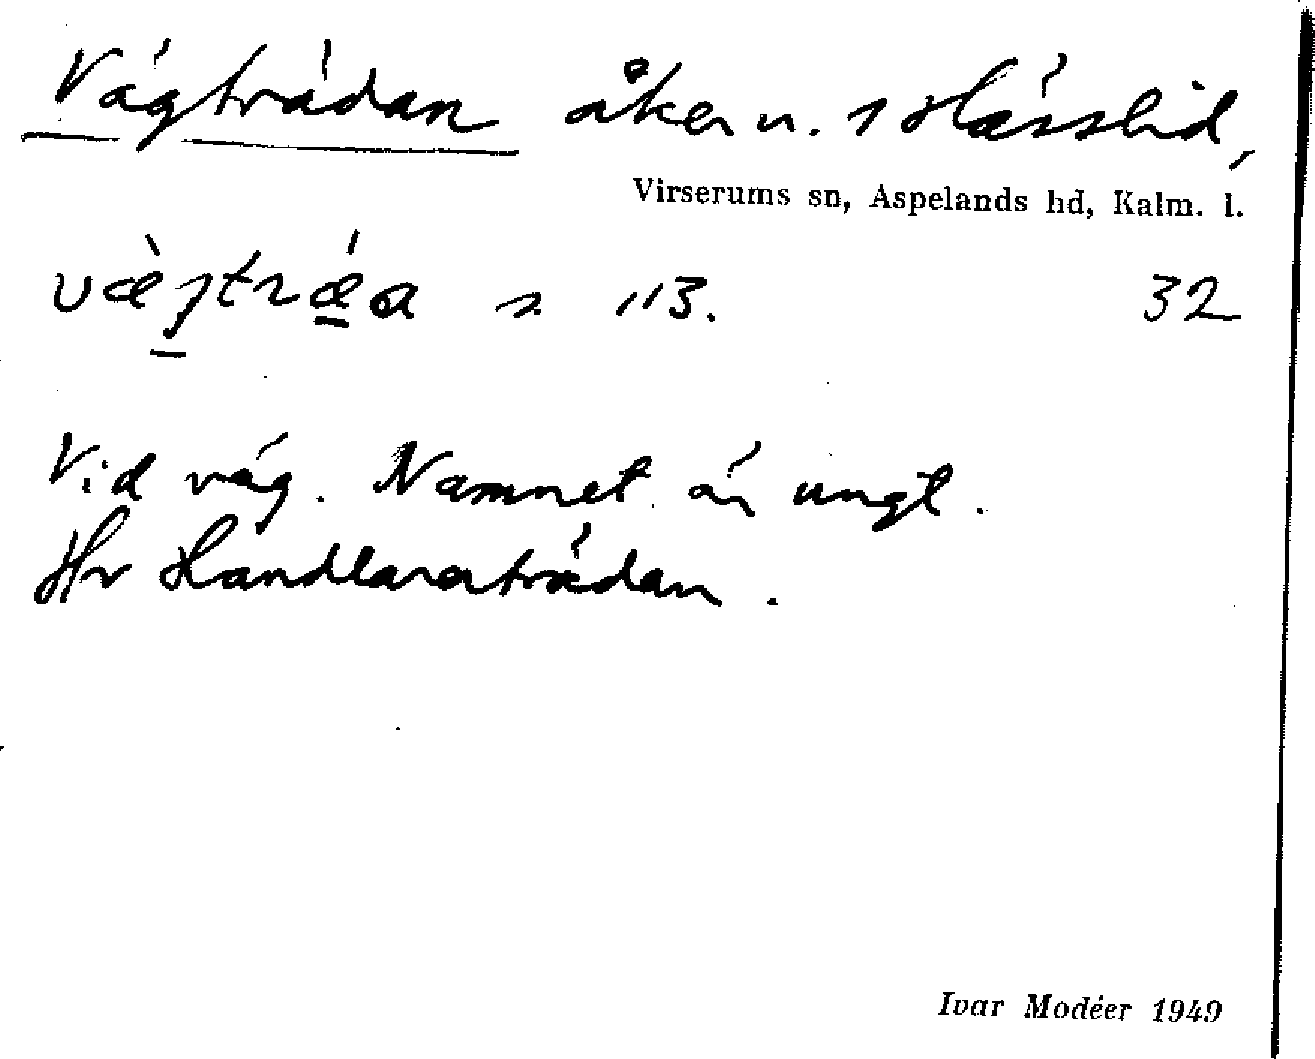 Vägträdan åker n. 1 Hässlid,
Virserums sn, Aspelands hd, Kalm. l.
væ̀jtrǽa s. 113. 32
Vid väg. Namnet är ungt.
Hr Handlareträdan.
Ivar Modéer 1949